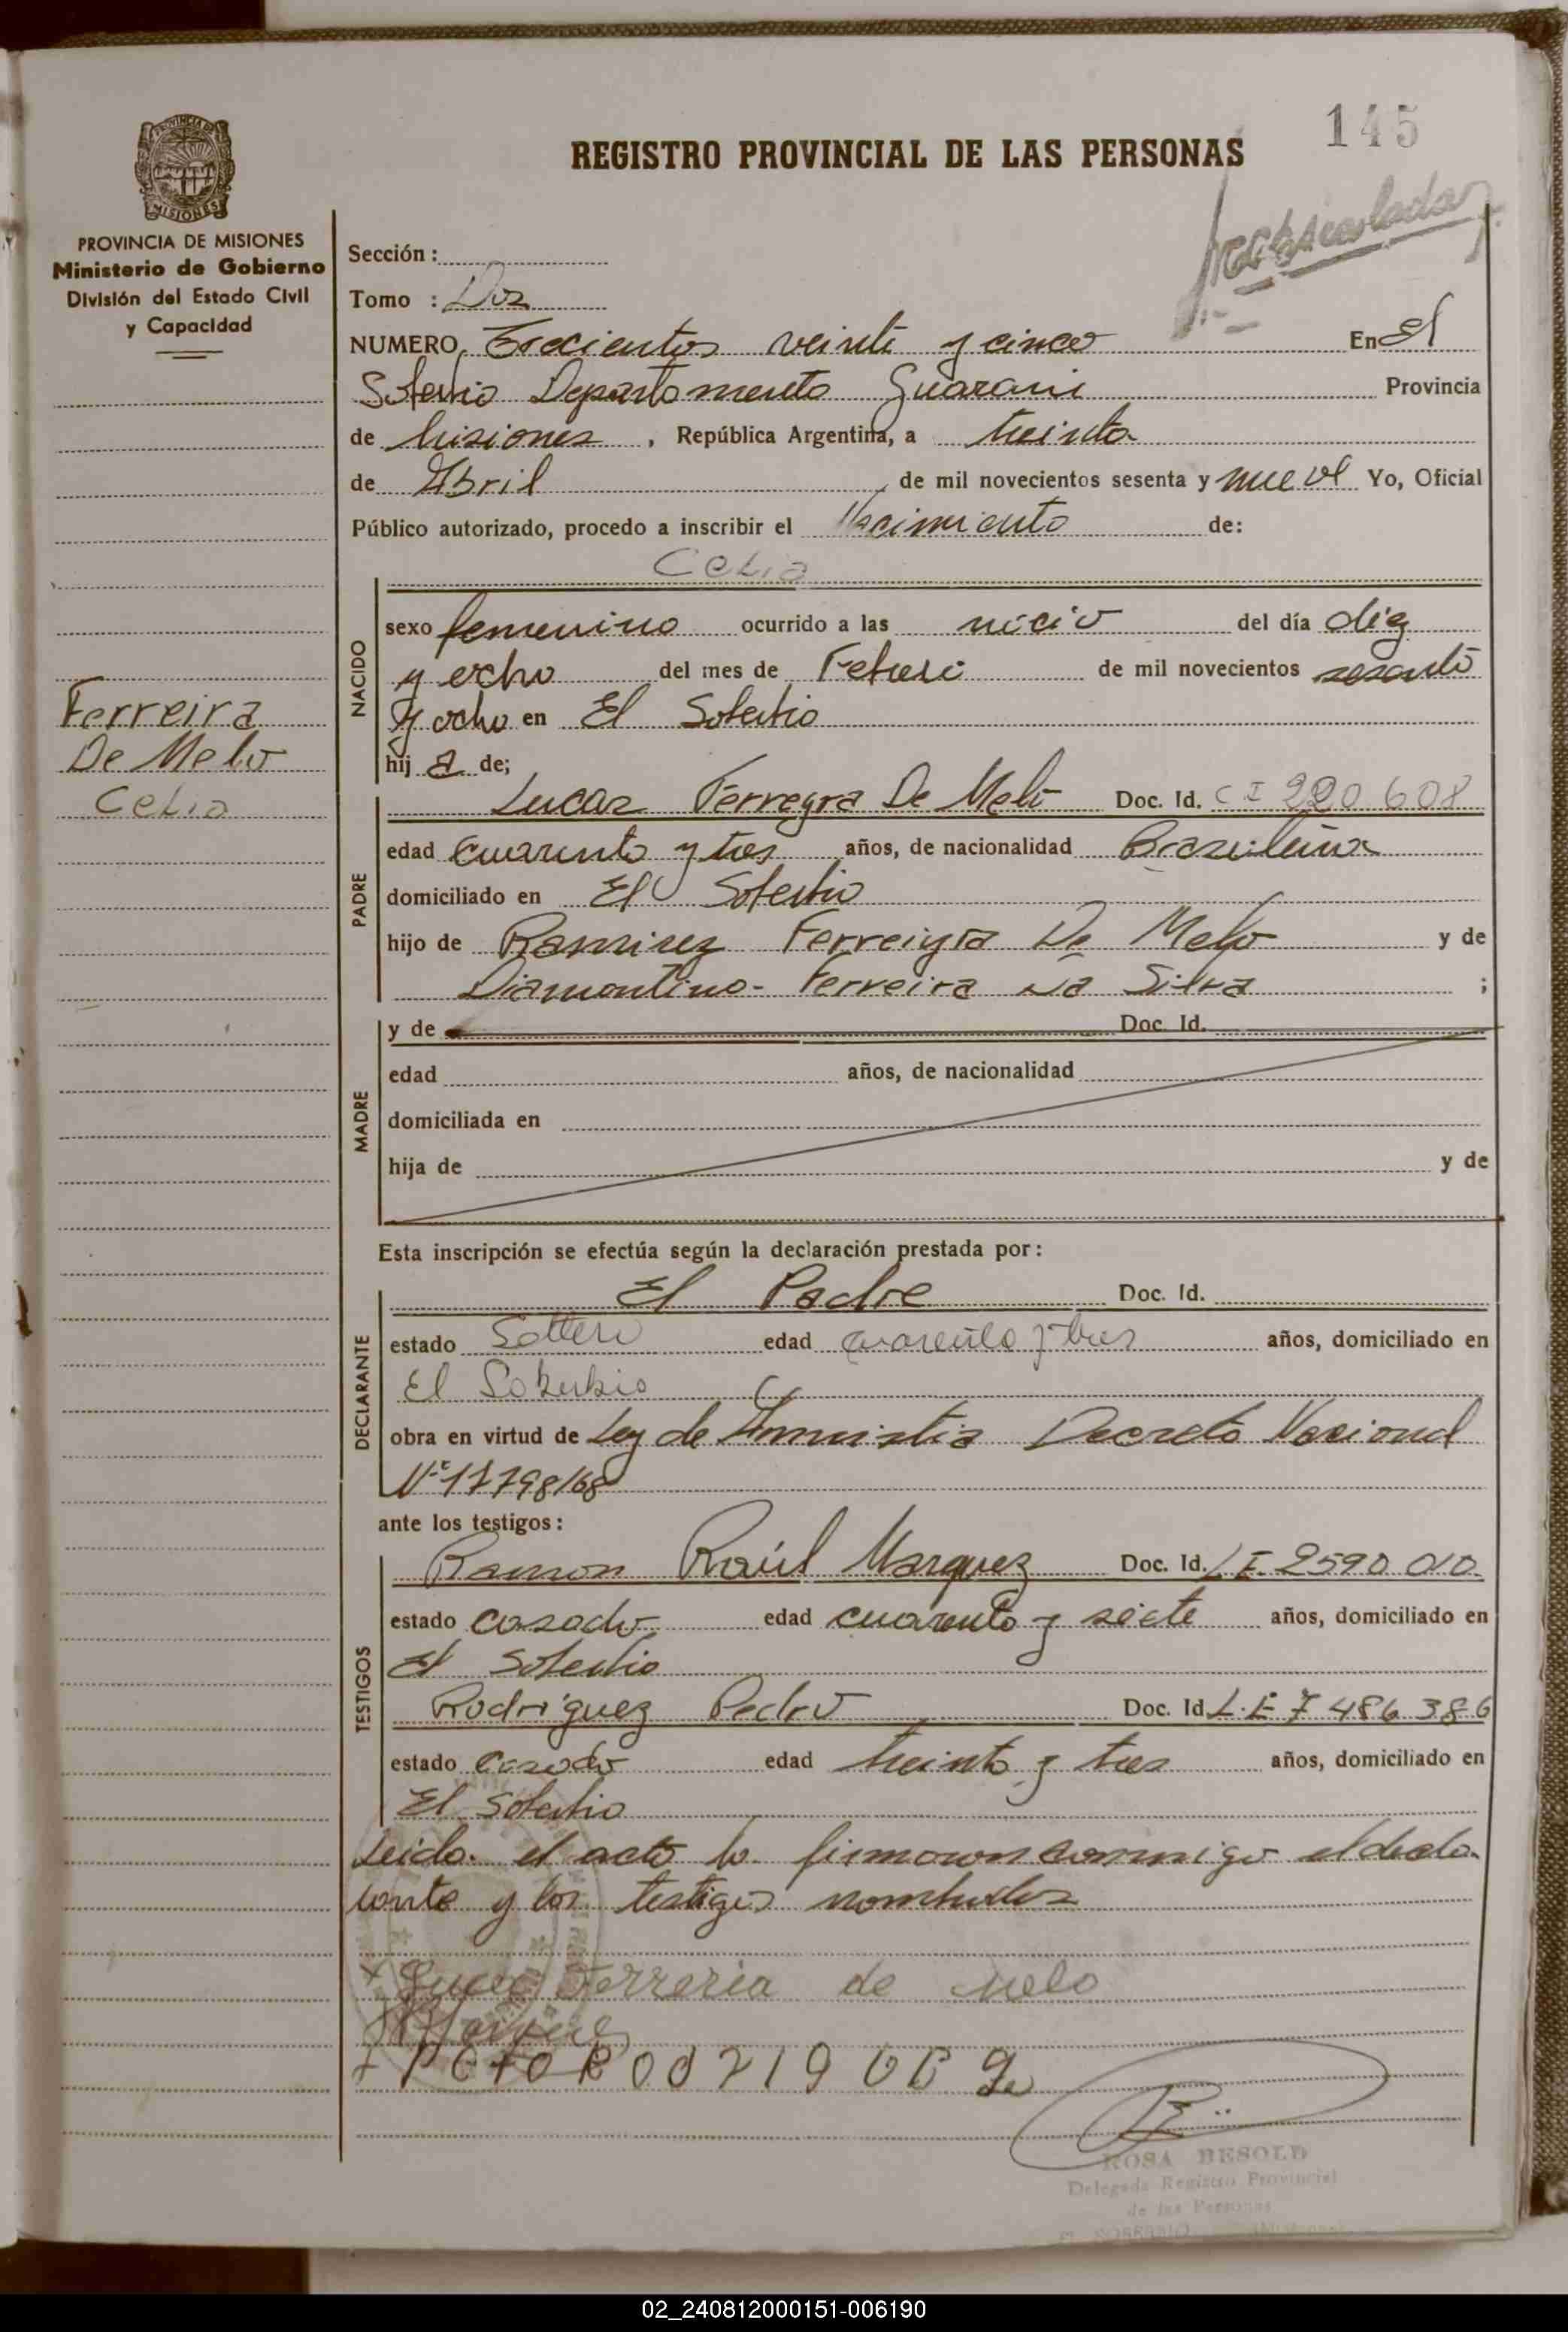 145
REGISTRO PROVINCIAL DE LAS PERSONAS
PROVINCIA DE MISIONES
MISIONES
PROVINCIA DE MISIONES
Ministerio de Gobierno
División del Estado Civil
y Capacidad
Sección :
Tomo : Dos
NUMERO Trecientos veinte y cinco En El
Soberbio Departamento Guarani Provincia
de Misiones , República Argentina, a treinta
de Abril de mil novecientos sesenta y nueve Yo, Oficial
Público autorizado, procedo a inscribir el Nacimiento de:
Celia
NACIDO
sexo femenino ocurrido a las del día diez
y ocho del mes de Febrero de mil novecientos sesenta
y ocho en El Soberbio
hij a de;
Ferreira
De Melo
Celia
PADRE
Lucas Ferreyra De Melo Doc. Id. C I 220 608
edad cuarenta y tres años, de nacionalidad Brazileña
domiciliado en El Soberbio
hijo de Ramirez Ferreiyra De Melo y de
Diamantina- Ferreira Da Silva ;
MADRE
y de Doc. Id.
edad años, de nacionalidad
domiciliada en
hija de y de
Esta inscripción se efectúa según la declaración prestada por :
DECLARANTE
El Padre Doc. Id.
estado Soltero edad cuarenta y tres años, domiciliado en
El Soberbio
obra en virtud de Ley de Amnistia Decreto Nacional
Nº 17798/68
ante los testigos :
TESTIGOS
Ramon Raúl Marquez Doc. Id. L E. 2590 010
estado casado edad cuarenta y siete años, domiciliado en
El Soberbio
Rodriguez Pedro Doc. Id L.E 7 486 386
estado casado edad treinta y tres años, domiciliado en
El Soberbio
Leida el acta la firmaron conmigo el decla-
rante y los testigos nombrados
Ferreria de melo
ROSA BESOLD
Delegada Registro Provincial
de las Personas
EL SOBERBIO
02_240812000151-006190